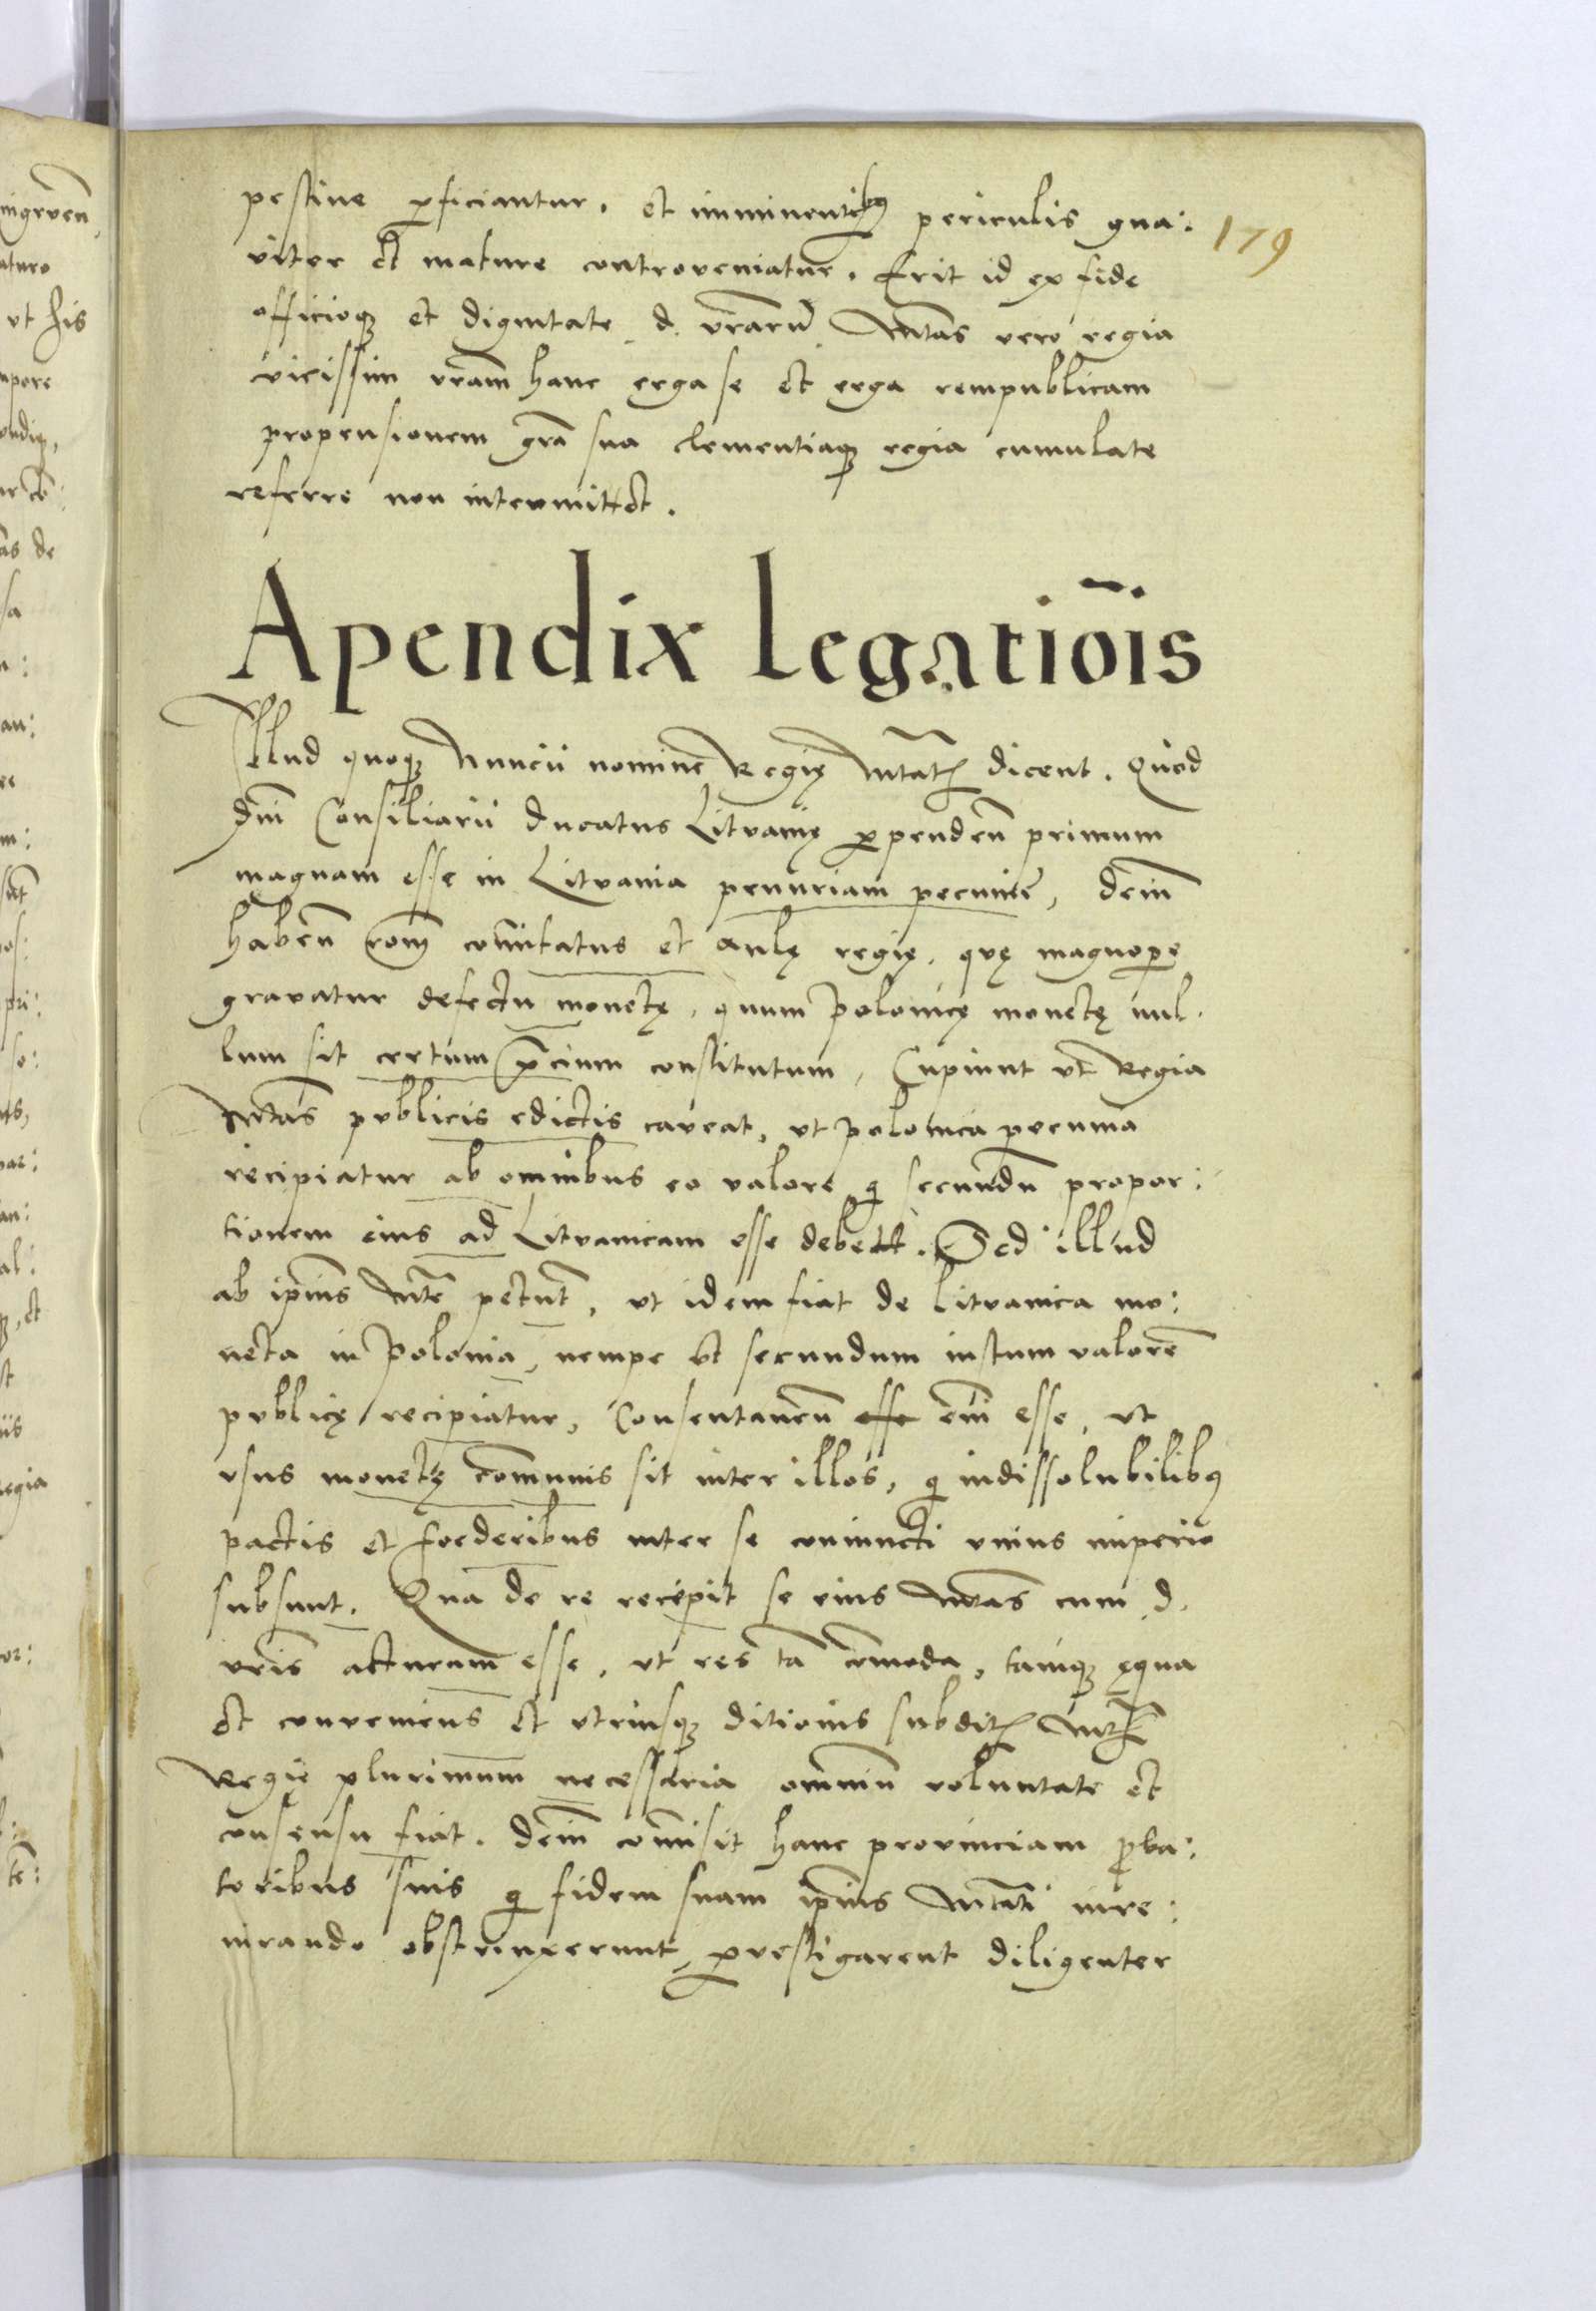 pestine perficiantur. et imminentibus periculis gna:
179
viter et mature controveniatur. Erit id ex fide
officioq; et dignitate d. vrarũ. Mtas vero regia
vicissim vram hanc erga se et erga rempublicam
propensionem gra sua clementiaq; regia cumulate
referre non intermittet.
Apendix Legatiõis
Illud quoq; Nuncii nomine Regię Mtatis dicent. Quod
dni Consiliarii Ducatus Litvanię perpendeñ primum
magnam esse in Litvania penuriam pecunię, dein
habeñ roem comitatus et aulę regię. quę magnopere
gravatur defectu monetę, quum Polonicę monetę nul.
lum sit certum precium constitutum, Cupiunt ut Regia
Mtas publicis edictis caveat, ut polonica pecunia
recipiatur ab omnibus eo valore qui secundũ propor:
tionem eius ad Litvanicam esse debet. Sed illud
ab ipsius Mte petunt, ut idem fiat de litvanica mo:
neta in Polonia, nempe ut secundum iustum valorẽ
publicę recipiatur, Consentaneũ esse eni esse, ut
usus monetę comunis sit inter illos, qui indissolubilibus
pactis et foederibus inter se coniuncti unius imperio
subsunt. Qua de re recepit se eius Mtas cum d.
vris acturam esse, ut res ta comoda, tamq; ęqua
et conveniens et utriusq; ditionis subditis Mtis
Regię plurimum necessaria omniũ voluntate et
consensu fiat. Dein comisit hanc provinciam proba:
toribus suis qui fidem suam ipsius Mtati iure:
iurando obstrinxerunt, pervestigarent diligenter